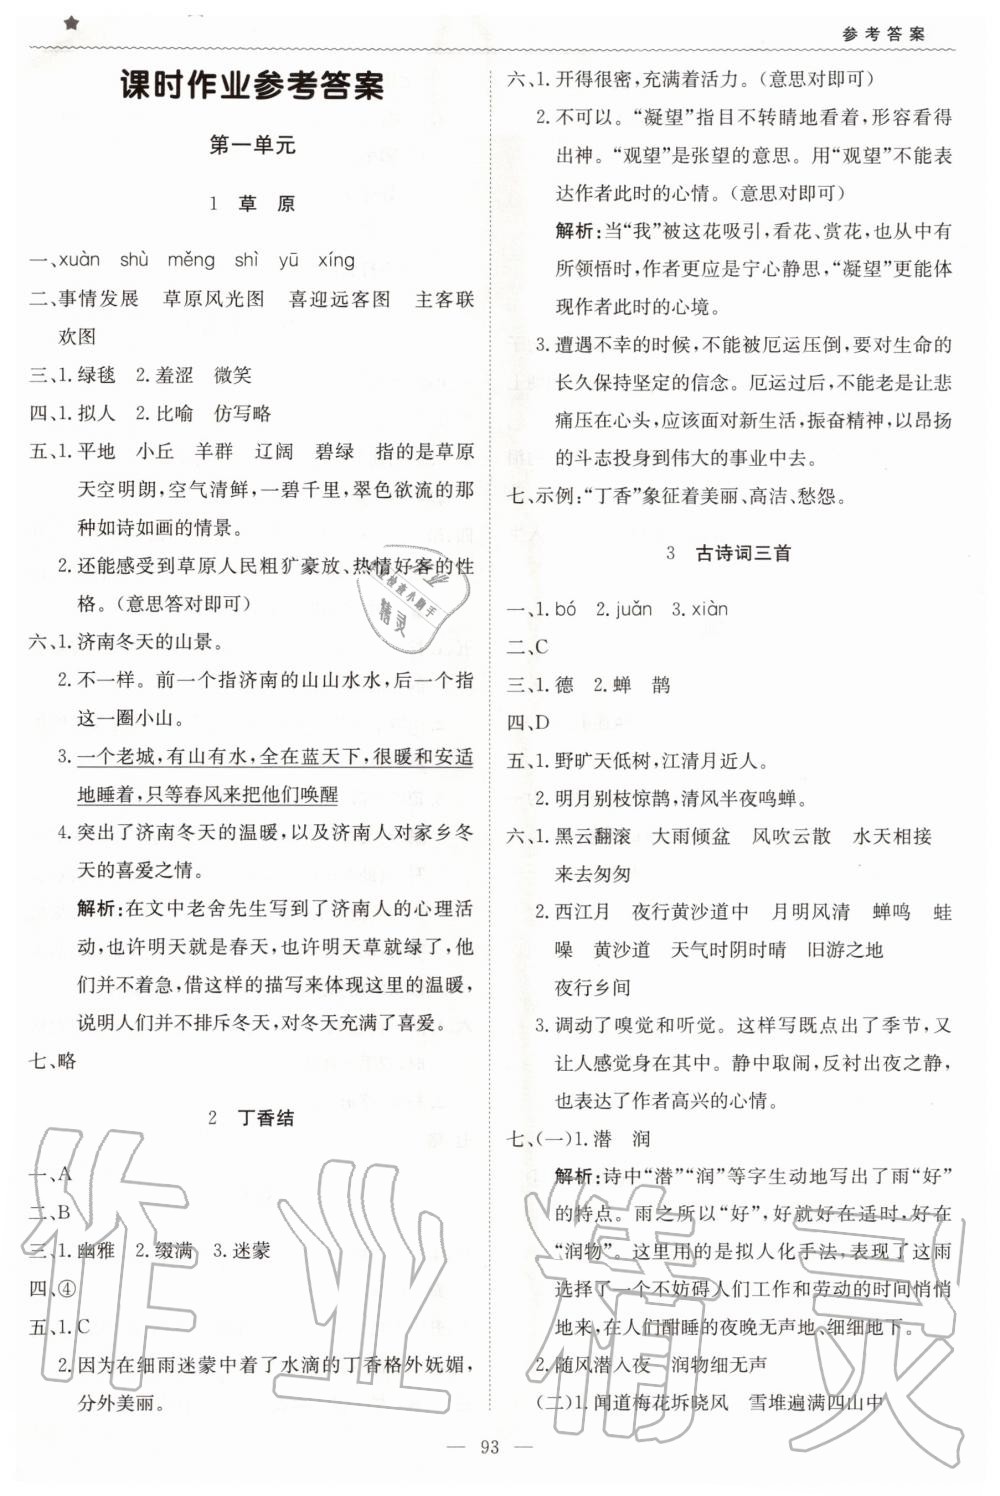 参考答案
课时作业参考答案
第一单元
1 草 原
一、xuàn shù měng shì yū xíng
二、事情发展 草原风光图 喜迎远客图 主客联
欢图
三、1.绿毯 2.羞涩 微笑
四、1.拟人 2.比喻 仿写略
五、1.平地 小丘 羊群 辽阔 碧绿 指的是草原
天空明朗,空气清鲜,一碧千里,翠色欲流的那
种如诗如画的情景。
2.还能感受到草原人民粗犷豪放、热情好客的性
格。(意思答对即可)
六、1.济南冬天的山景。
2.不一样。前一个指济南的山山水水,后一个指
这一圈小山。
3.一个老城,有山有水,全在蓝天下,很暖和安适
地睡着,只等春风来把他们唤醒
4.突出了济南冬天的温暖,以及济南人对家乡冬
天的喜爱之情。
解析:在文中老舍先生写到了济南人的心理活
动,也许明天就是春天,也许明天草就绿了,他
们并不着急,借这样的描写来体现这里的温暖,
说明人们并不排斥冬天,对冬天充满了喜爱。
七、略
2 丁香结
一、A
二、B
三、1.幽雅 2.缀满 3.迷蒙
四、④
五、1.C
2.因为在细雨迷蒙中着了水滴的丁香格外妩媚,
分外美丽。
六、1.开得很密,充满着活力。(意思对即可)
2.不可以。“凝望”指目不转睛地看着,形容看得
出神。“观望”是张望的意思。用“观望”不能表
达作者此时的心情。(意思对即可)
解析:当“我”被这花吸引,看花、赏花,也从中有
所领悟时,作者更应是宁心静思,“凝望”更能体
现作者此时的心境。
3.遭遇不幸的时候,不能被厄运压倒,要对生命的
长久保持坚定的信念。厄运过后,不能老是让悲
痛压在心头,应该面对新生活,振奋精神,以昂扬
的斗志投身到伟大的事业中去。
七、示例:“丁香”象征着美丽、高洁、愁怨。
3 古诗词三首
一、1.bó 2.juǎn 3.xiàn
二、C
三、1.德 2.蝉 鹊
四、D
五、1.野旷天低树,江清月近人。
2.明月别枝惊鹊,清风半夜鸣蝉。
六、1.黑云翻滚 大雨倾盆 风吹云散 水天相接
来去匆匆
2.西江月 夜行黄沙道中 月明风清 蝉鸣 蛙
噪 黄沙道 天气时阴时晴 旧游之地
夜行乡间
3.调动了嗅觉和听觉。这样写既点出了季节,又
让人感觉身在其中。静中取闹,反衬出夜之静,
也表达了作者高兴的心情。
七、(一)1.潜 润
解析:诗中“潜”“润”等字生动地写出了雨“好”
的特点。雨之所以“好”,好就好在适时,好在
“润物”。这里用的是拟人化手法,表现了这雨
选择了一个不妨碍人们工作和劳动的时间悄悄
地来,在人们酣睡的夜晚无声地、细细地下。
2.随风潜入夜 润物细无声
(二)1.闻道梅花坼晓风 雪堆遍满四山中
— 93 —
作业精灵
作业检查小助手
精灵